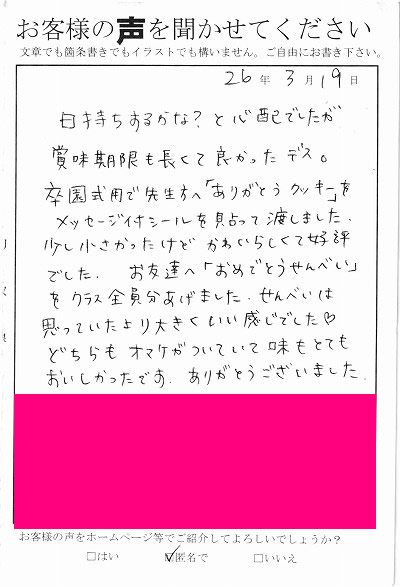 お客様の声を聞かせてください
文章でも箇条書きでもイラストでも構いません。ご自由にお書き下さい。
26年 3月19日
日持ちするかな?と心配でしたが
賞味期限も長くて良かったデス。
卒園式用で先生方へ「ありがとうクッキー」を
メッセージ付シールを貼って渡しました.
少し小さかったけど かわいらしくて好評
でした. お友達へ「おめでとうせんべい」
をクラス全員分あげました. せんべいは
思っていたより大きくいい感じでした♡
どちらも オマケがついていて 味もとても
おいしかったです. ありがとうございました.
お客様の声をホームページ等でご紹介してよろしいでしょうか?
□はい ☑匿名で □いいえ